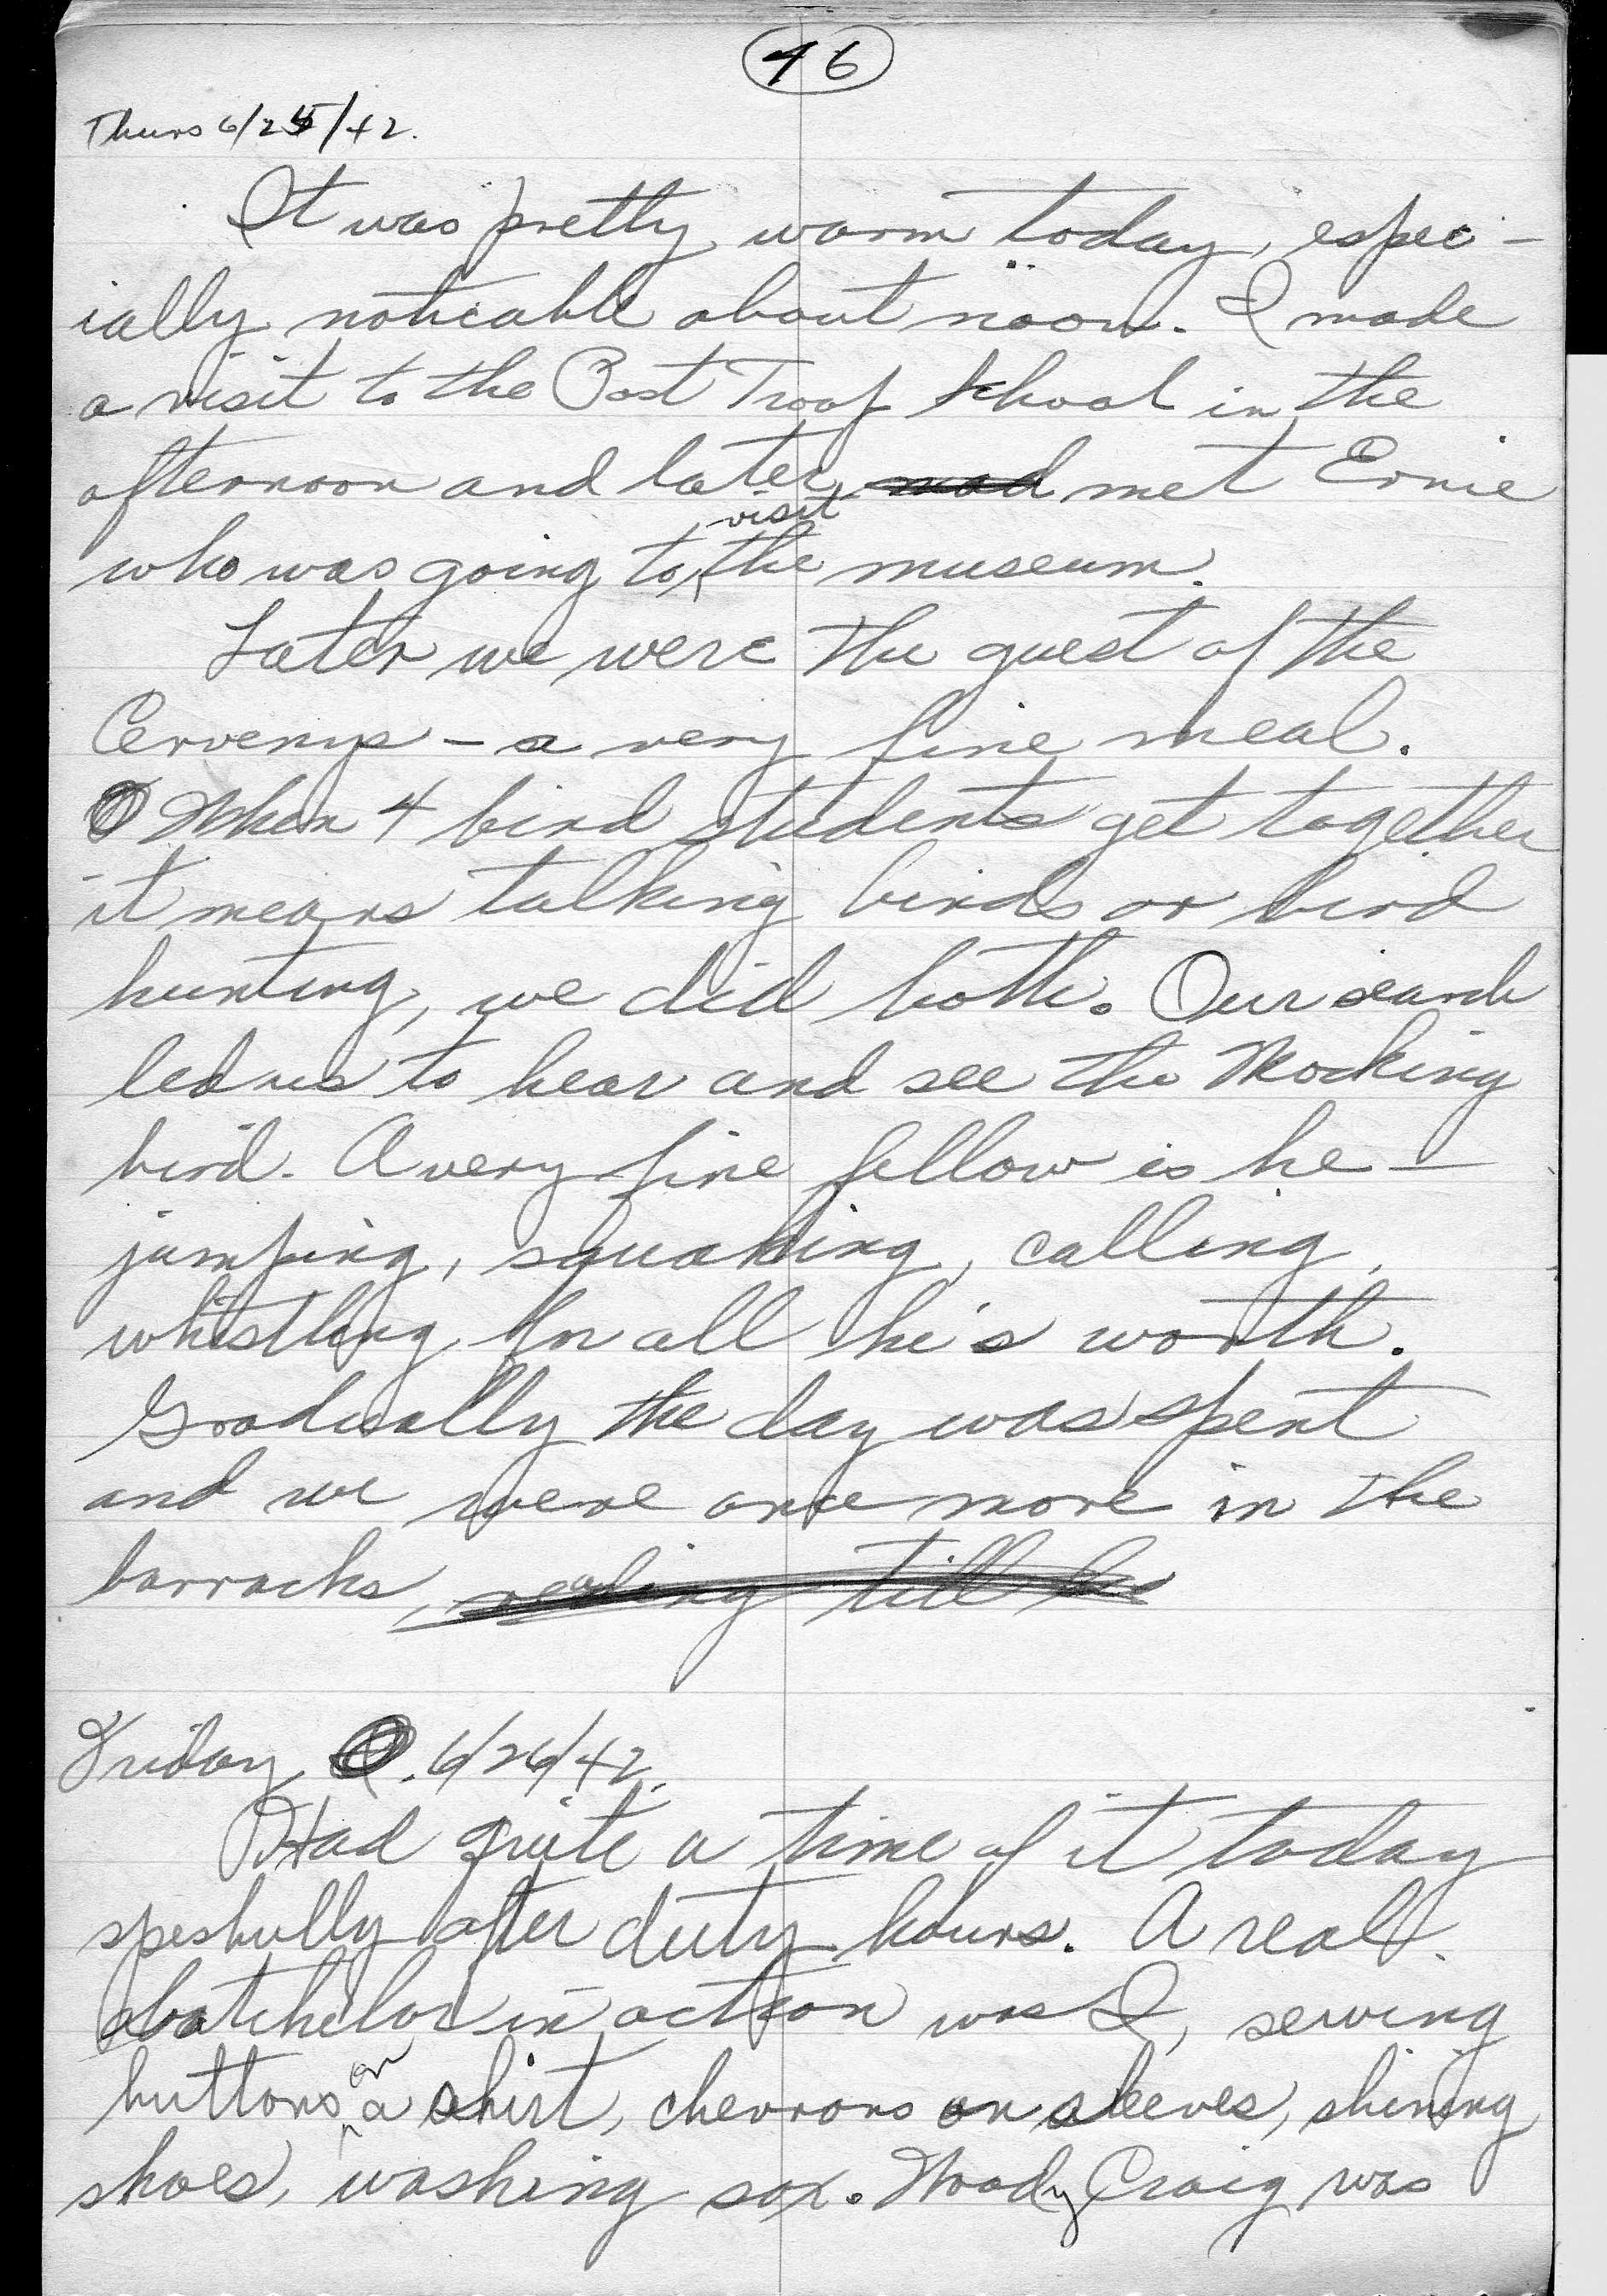 46
Thurs 6/25/42.
It was pretty warm today, espec-
ially noticable about noon. I made
a visit to the Post Troop School in the
afternoon and later mad met Ernie
visit
who was going to the museum.
Later we were the guest of the
Cervenys - a very fine meal.
When 4 bird students get together
it means talking birds or bird
hunting, we did both. Our search
led us to hear and see the Mocking
bird. A very fine fellow is he -
jumping, squaking, calling,
whistling for all he's worth.
Gradually the day was spent
and we were once more in the
barracks, reading till he
Friday 6/26/42.
Had quite a time of it today
speshully after duty hours. A real
batchelor in action was I, sewing
on
buttons a shirt, chevrons on sleeves, shining
shoes, washing sox. Woody Craig was